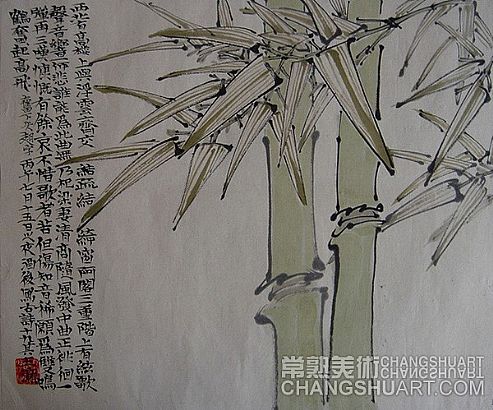 西北有高樓上與浮雲齊交疏結綺窗阿閣三重階上有絃歌
聲音響何悲誰能為此曲無乃杞梁妻清商隨風發中曲正徘徊一
彈再三嘆慷慨有餘哀不惜歌者苦但傷知音稀願為雙鳴
鶴奮起高飛 丙午七月十五日夜酒後寫古詩十
常熟美術 CHANGSHUART.COM
CHANGSHUART.COM